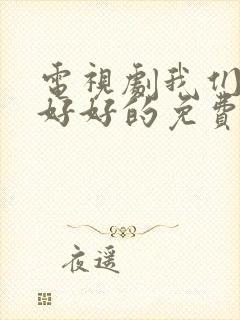 電視劇我们
好好的免費
夜遥